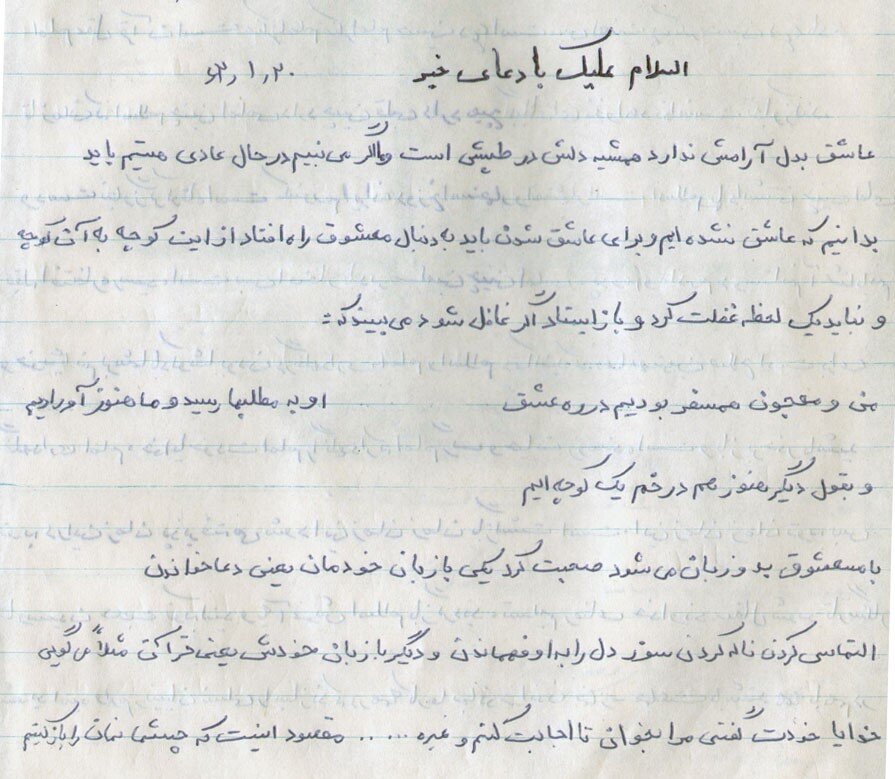 السلام علیک با دعای خیر ۶۳٫۱٫۲۰
عاشق بدل آرامش ندارد همیشه دلش در طپش است واگر می‌بینیم در حال عادی هستیم باید
بدانیم که عاشق نشده ایم و برای عاشق شدن باید به دنبال معشوق راه افتاد از این کوچه به آن کوچه
و نباید یک لحظه غفلت کرد و باز ایستاد اگر غافل شود می بیند که:
من و مجنون همسفر بودیم در ره عشق او به مطلبها رسید و ما هنوز آواره‌ایم
و بقول دیگر هنوز هم در خم یک کوچه ایم
با معشوق بدو زبان می شود صحبت کرد یکی با زبان خودمان یعنی دعا خواندن
التماس کردن ناله کردن سوز دل را به او فهماندن و دیگر با زبان خودش یعنی قرآن مثلاً می گویی
خدایا خودت گفتی مرا بخوان تا اجابت کنم و غیره ..... مقصود اینست که چشمانمان را باز کنیم